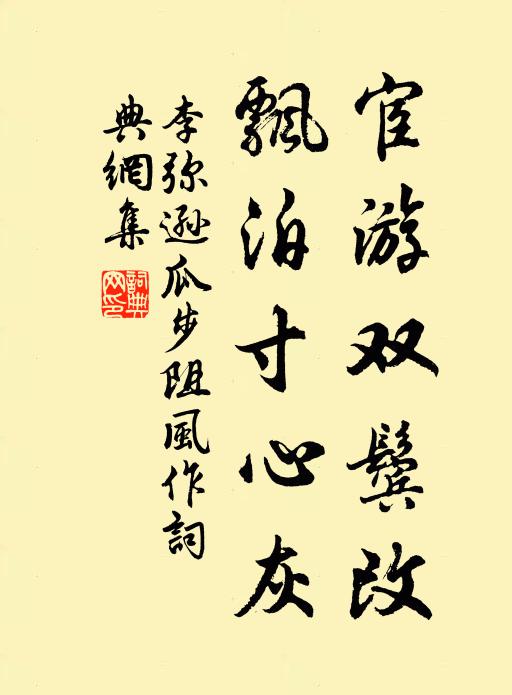 宦游双鬓改
飘泊寸心灰
李弥逊瓜步阻風作詞
典網集
詞典
网印